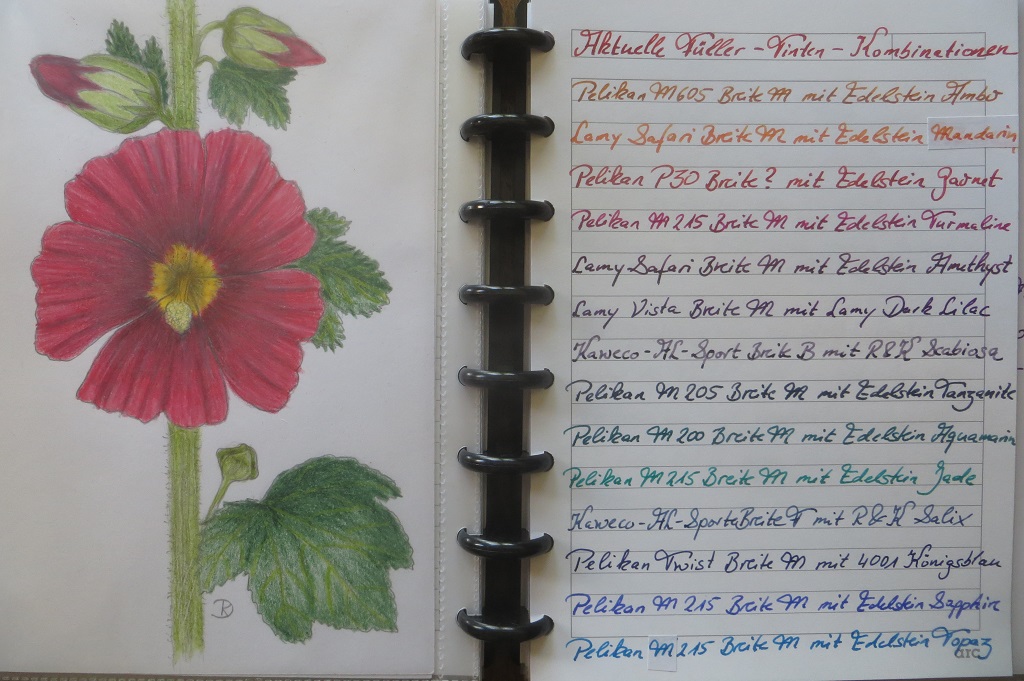 Aktuelle Füller-Tinten-Kombinationen
Pelikan M605 Breite M mit Edelstein Ambr
Lamy Safari Breite M mit Edelstein Mandarin
Pelikan P30 Breite? mit Edelstein Garnet
Pelikan M215 Breite M mit Edelstein Turmaline
Lamy Safari Breite M mit Edelstein Amethyst
Lamy Vista Breite M mit Lamy Dark Lilac
Kaweco-AL-Sport Breite B mit R&K Scabiosa
Pelikan M205 Breite M mit Edelstein Tanzanite
Pelikan M200 Breite M mit Edelstein Aquamarin
Pelikan M215 Breite M mit Edelstein Jade
Kaweco-AL-Sport Breite F mit R&K Salix
Pelikan Twist Breite M mit 4001 Königsblau
Pelikan M215 Breite M mit Edelstein Sapphire
Pelikan M215 Breite M mit Edelstein Topaz
arc